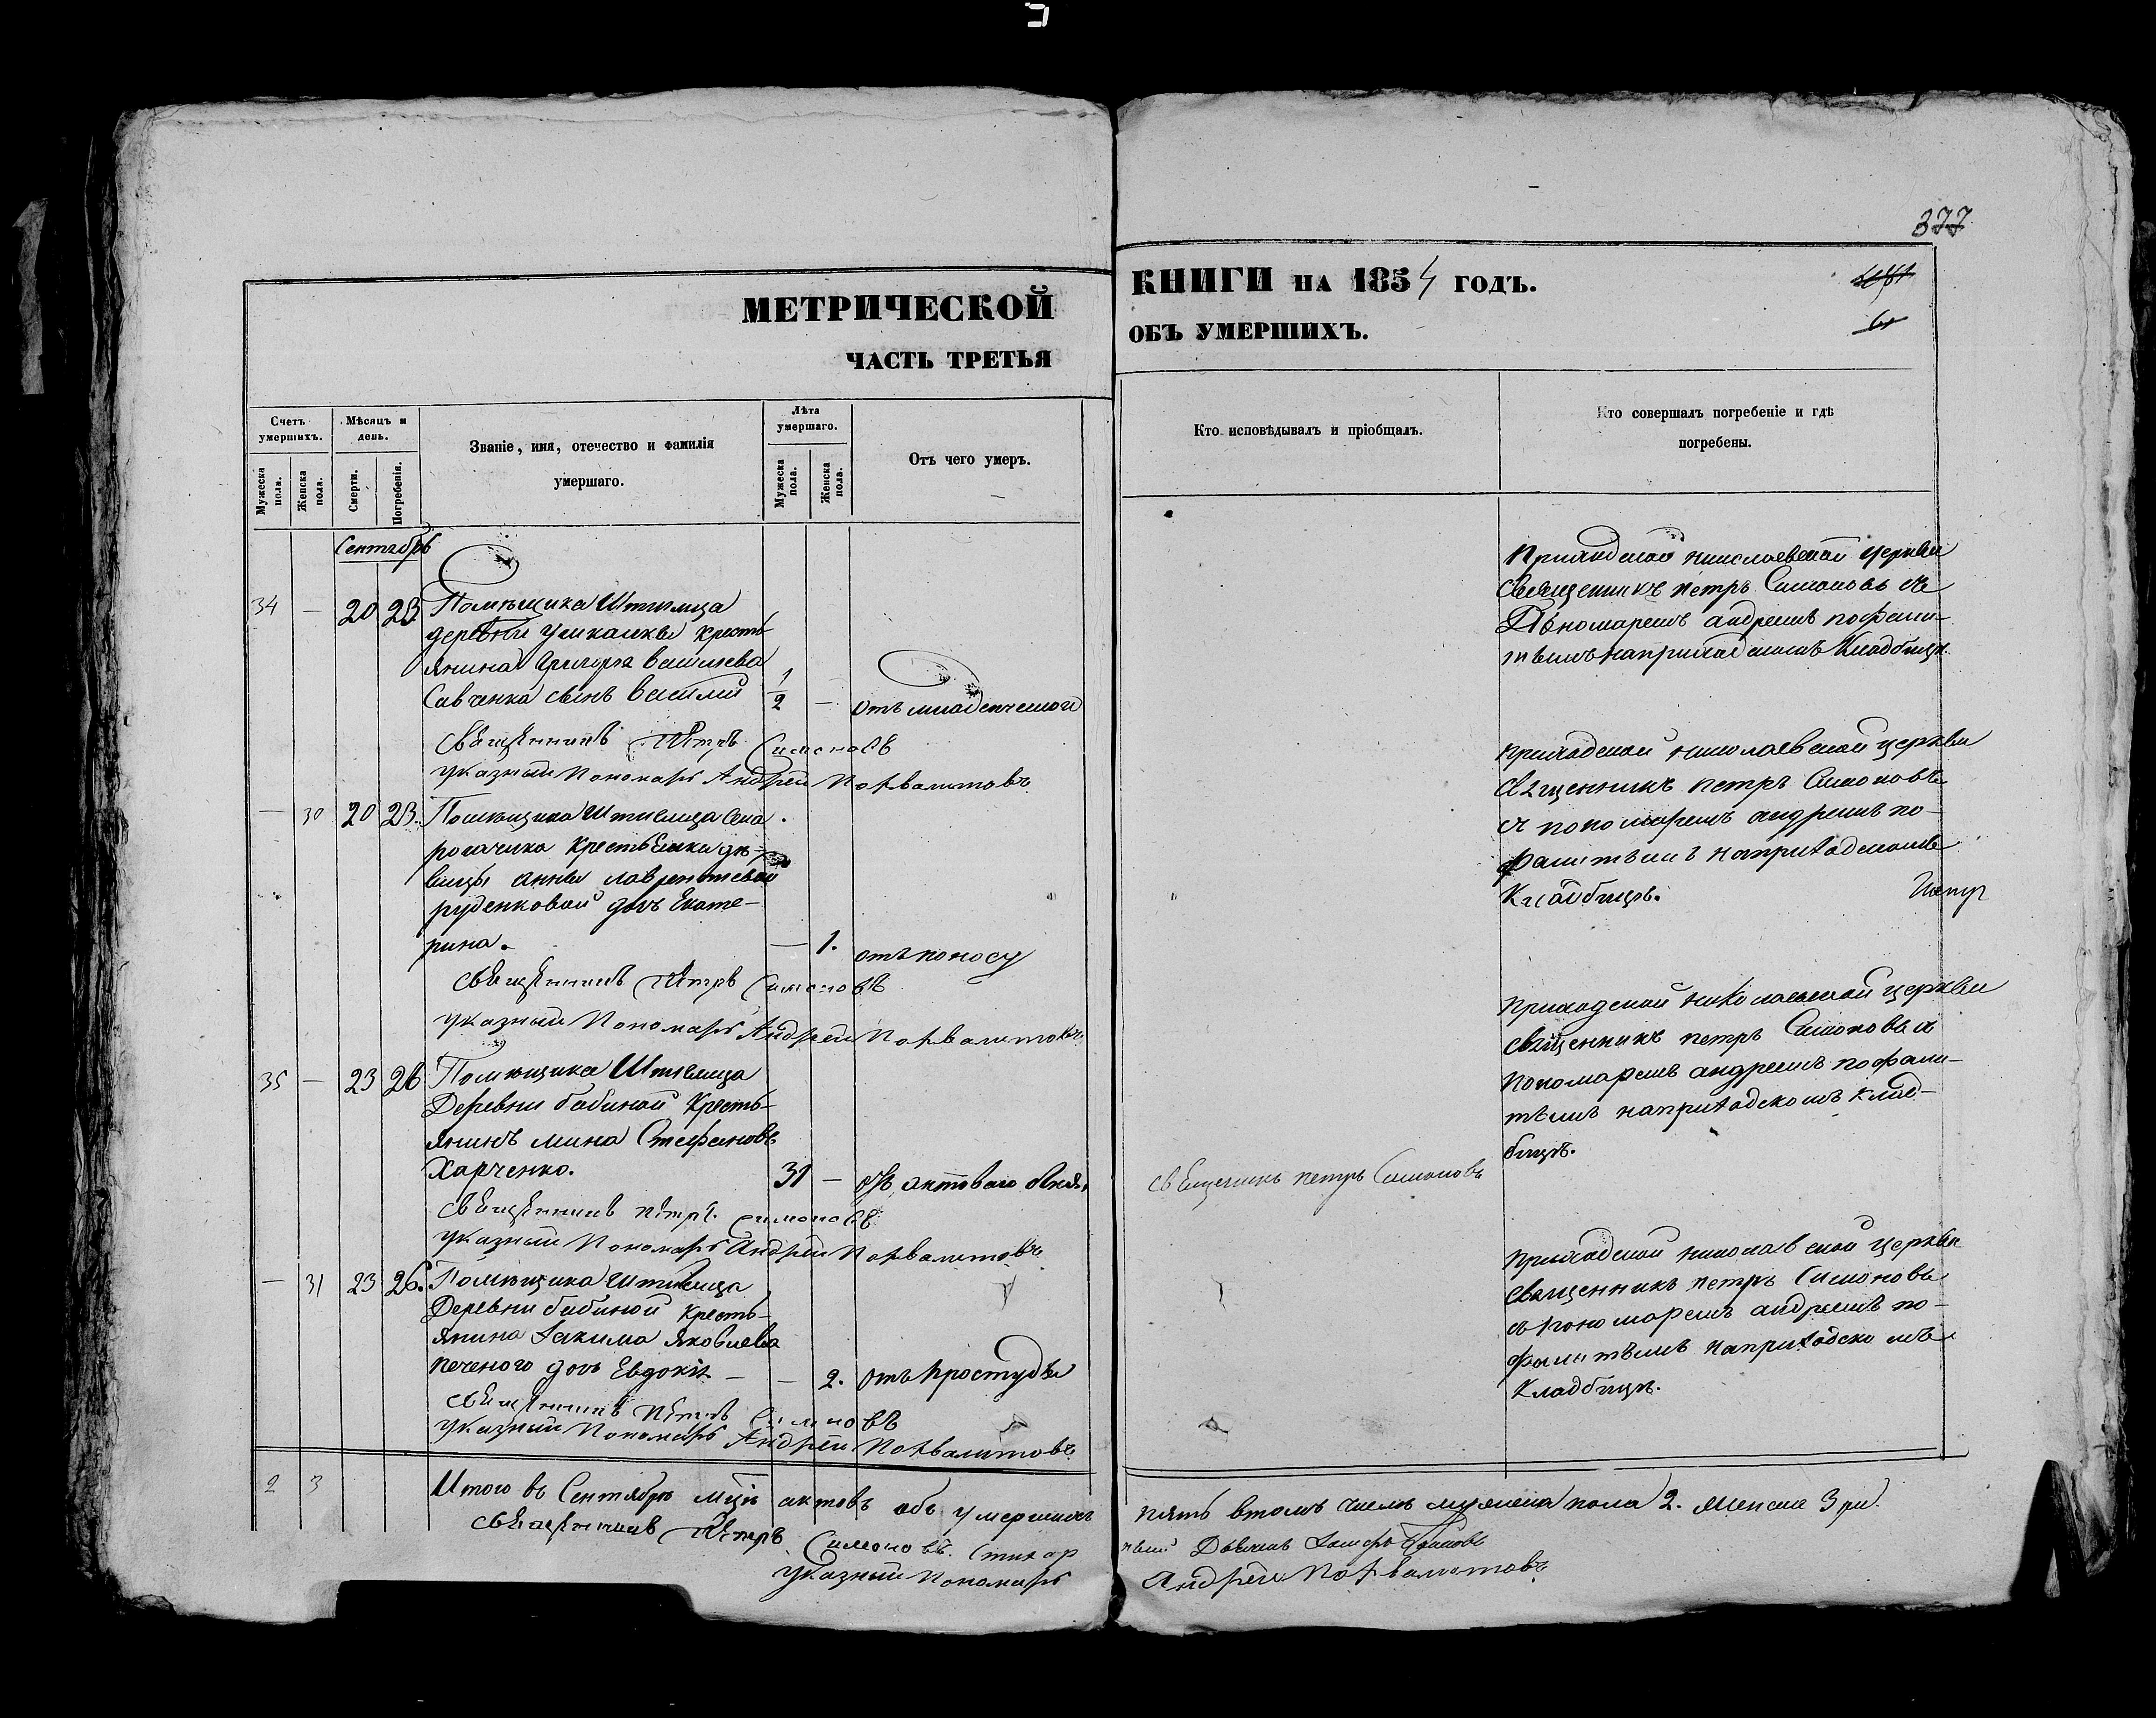 377
МЕТРИЧЕСКОЙ
ЧАСТЬ ТРЕТЬЯ
КНИГИ НА 1854 ГОДЪ.
ОБЪ УМЕРШИХЪ.
Счетъ умершихъ.
Мужеска пола.
Женска пола.
Мѣсяцъ и день.
Смерти.
Погребенія.
Званіе, имя, отечество и фамилія
умершаго.
Лѣта умершаго.
Мужеска пола.
Женска пола.
Отъ чего умеръ.
Кто исповѣдывалъ и пріобщалъ.
Кто совершалъ погребеніе и гдѣ
погребены.
Сентябрь
34 — 20 23 Помѣщика Штиглица
деревни кресть-
янина Григорія Васильева
Савченка сынъ Василій 1/2 — отъ младенческаго
Священникъ Петръ Симоновъ
Указный Пономарь Андрей Похвалитовъ
Приходской Николаевской церкви
Священникъ Петръ Симоновъ съ
Пономаремъ Андреемъ Похвали-
тымъ на приходскомъ Кладбищѣ.
— 30 20 23. Помѣщика Штиглица села
рогачика крестьянки дѣ-
вицы Анны Лаврентьевой
руденковой дочь Екате-
рина. — 1. отъ поносу
Священникъ Петръ Симоновъ
Указный Пономарь Андрей Похвалитовъ
приходской Николаевской церкви
Священникъ Петръ Симоновъ
съ пономаремъ Андреемъ По-
хвалитымъ на приходскомъ
Кладбищѣ.
35 — 23 26 Помѣщика Штиглица
Деревни бабиной Кресть-
янинъ Мина Стефановъ
Харченко. 31 —
Священникъ Петръ Симоновъ
Священникъ Петръ Симоновъ
Указный Пономарь Андрей Похвалитовъ
приходской Николаевской церкви
Священникъ Петръ Симоновъ съ
Пономаремъ Андреемъ Похвали-
тымъ на приходскомъ клад-
бищѣ.
— 31 23 26. Помѣщика Штиглица
Деревни бабиной Кресть-
янина Іакима Яковлева
печеного дочь Евдокія — — 2. отъ простуды
Священникъ Петръ Симоновъ
Указный Пономарь Андрей Похвалитовъ
приходской Николаевской церкви
Священникъ Петръ Симоновъ
съ пономаремъ Андреемъ По-
хвалитымъ на приходскомъ
Кладбищѣ.
2 3 Итого въ Сентябрѣ м҃цѣ актовъ объ умершихъ пять в томъ числѣ мужеска пола 2. женска 3 ри.
Священникъ Петръ Симоновъ.
Указный Пономарь Андрей Похвалитовъ